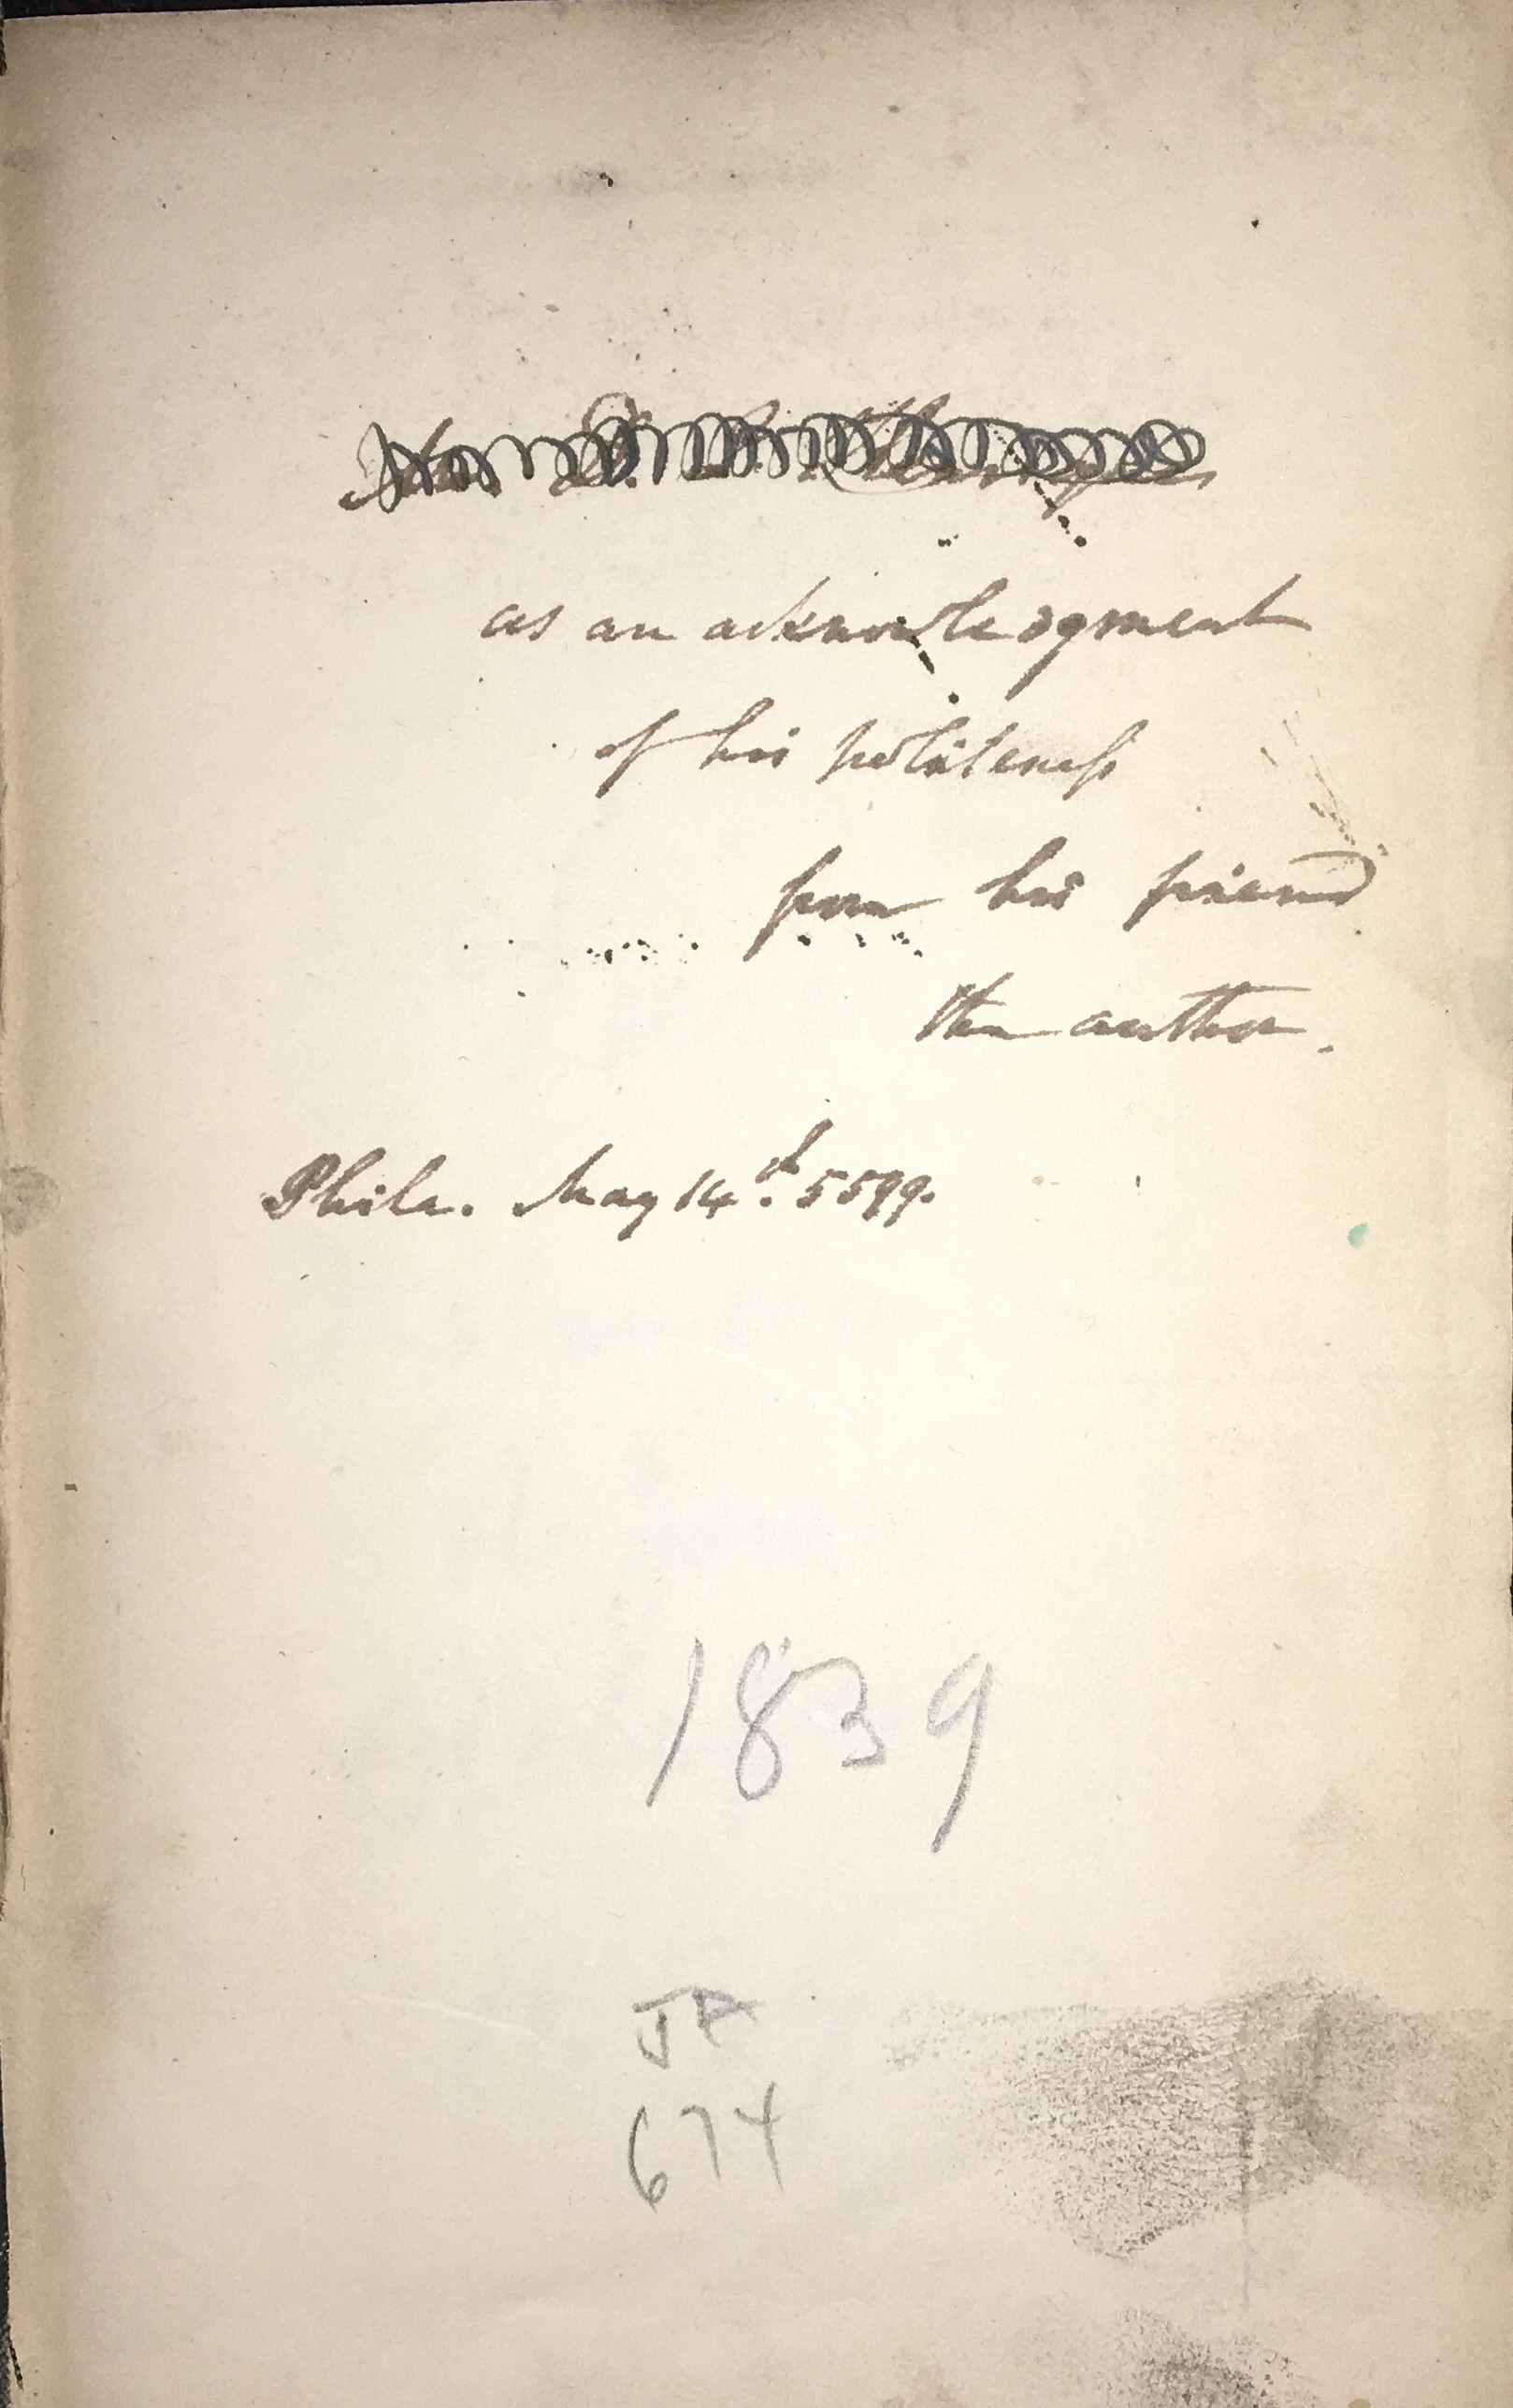 as an acknowledgment
of his politeness
from his friend
the author.
Phila. May 14th. 5599.
1839
JA
674